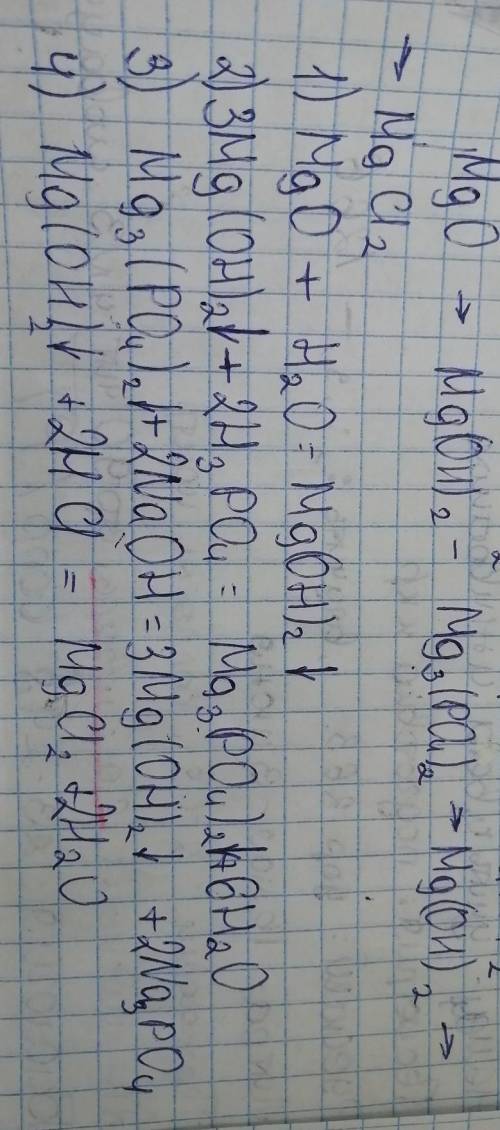 MgO → Mg(OH)₂ - Mg₃(PO₄)₂ → Mg(OH)₂ →
→ MgCl₂
1) MgO + H₂O = Mg(OH)₂↓
2) 3Mg(OH)₂↓ + 2H₃PO₄ = Mg₃(PO₄)₂↓ + 6H₂O
3) Mg₃(PO₄)₂↓ + 2NaOH = 3Mg(OH)₂↓ + 2Na₃PO₄
4) Mg(OH)₂↓ + 2HCl = MgCl₂ + 2H₂O